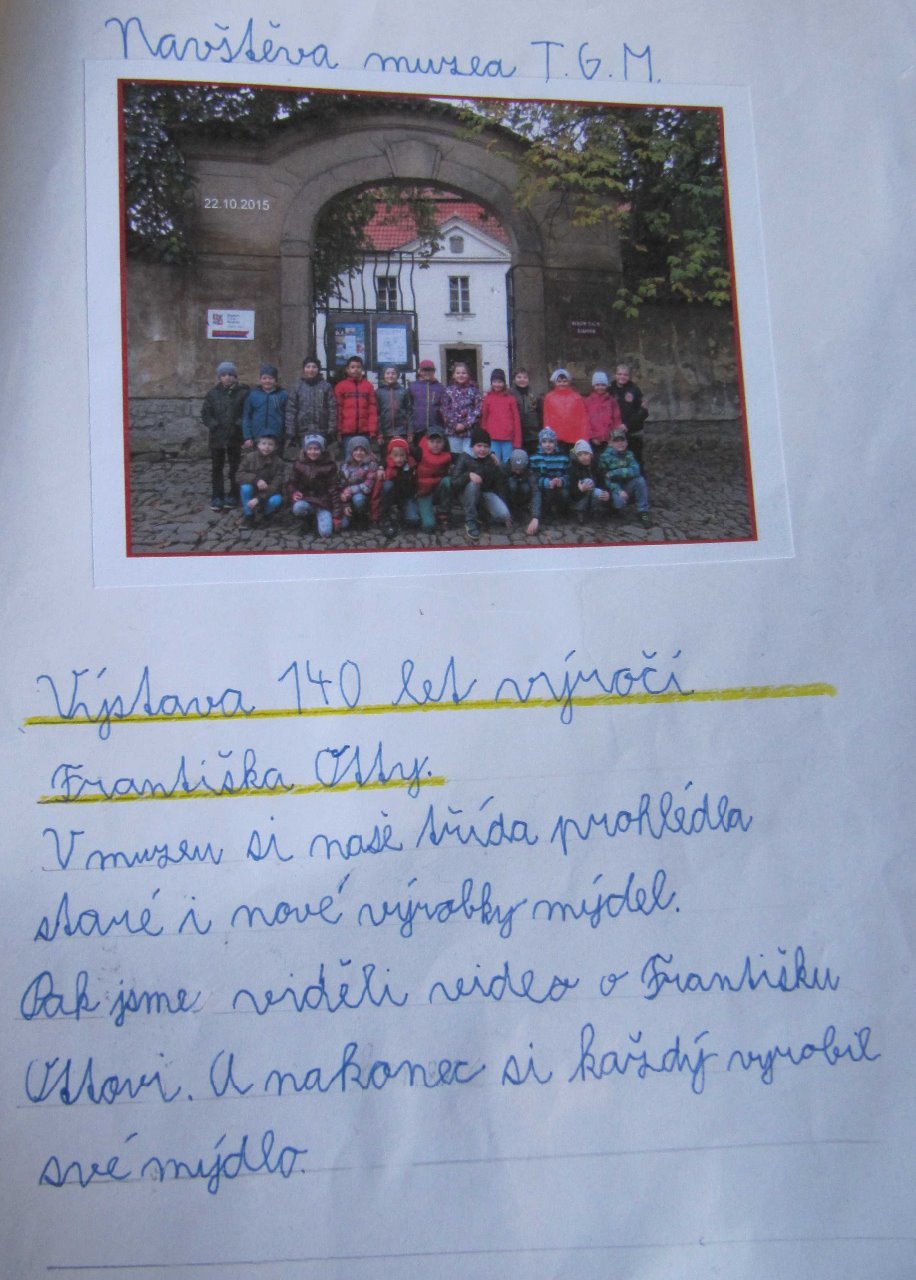 Navštěva muzea T.G.M.
22.10.2015
Výstava 140 let výročí
Františka Otty.
V muzeu si naše třída prohlédla
staré i nové výrobky mýdel.
Pak jsme viděli video o Františku
Ottovi. A nakonec si každý vyrobil
své mýdlo.